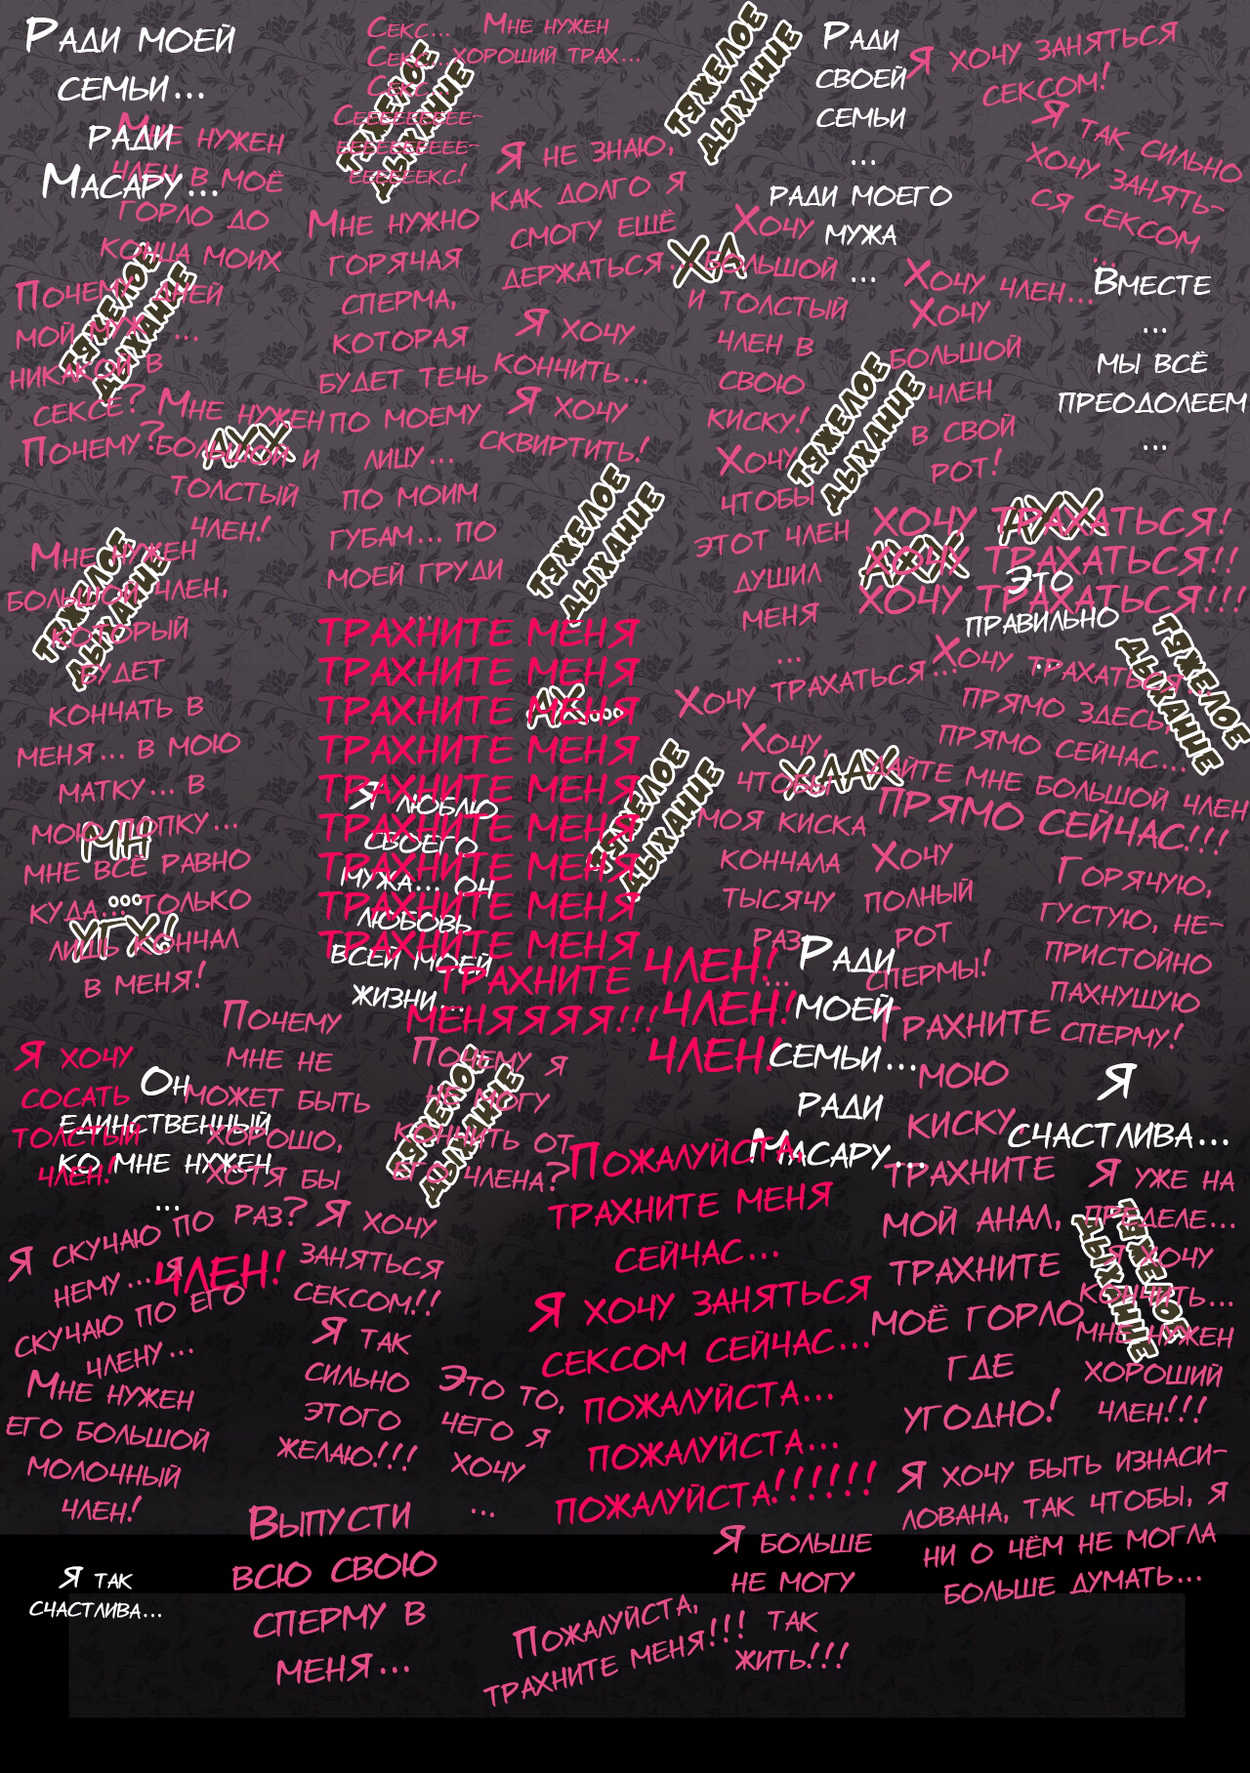 Ради моей
семьи...
ради
Масару...
Мне нужен
член в моё
горло до
конца моих
дней
Секс...
Секс...
Секс...
Сеееееееееее-
еееееееееее-
еееееекс!
Мне нужен
хороший трах...
тяжелое
дыхание
тяжелое
дыхание
Ради
своей
семьи
...
ради моего
мужа
...
Я хочу заняться
сексом!
Я так сильно
хочу занять-
ся сексом
...
Я не знаю,
как долго я
смогу ещё
держаться...
Ха
Мне нужно
горячая
сперма,
которая
будет течь
по моему
лицу...
по моим
губам... по
моей груди
...
Я хочу
кончить...
Я хочу
сквиртить!
Хочу
большой
и толстый
член в
свою
киску!
Хочу
чтобы
этот член
душил
меня
...
Хочу член...
Хочу
большой
член
в свой
рот!
Вместе
...
мы всё
преодолеем
...
тяжелое
дыхание
Почему
мой муж...
никакой в
сексе?
Почему?
Мне нужен
большой и
толстый
член!
Ахх
тяжелое
дыхание
тяжелое
дыхание
Ахх
Ахх
хочу трахаться!
хочу трахаться!!
хочу трахаться!!!
Это
правильно
...
тяжелое
дыхание
Мне нужен
большой член,
который
будет
кончать в
меня... в мою
матку... в
мою попку...
мне всё равно
куда... только
лишь кончал
в меня!
тяжелое
дыхание
Мн
...
Угх!
трахните меня
трахните меня
трахните меня
трахните меня
трахните меня
трахните меня
трахните меня
трахните меня
трахните меня
трахните
меняяяя!!!
Ах...
Я люблю
своего
мужа... Он
любовь
всей моей
жизни...
тяжелое
дыхание
Хочу трахаться...
Хочу,
чтобы
моя киска
кончала
тысячу
раз
...
Хаах
Хочу трахаться
прямо здесь
прямо сейчас...
дайте мне большой член
прямо сейчас!!!
тяжелое
дыхание
Хочу
полный
рот
спермы!
Горячую,
густую, не-
пристойно
пахнущую
сперму!
член!
член!
член!
Ради
моей
семьи...
ради
Масару...
Трахните
мою
киску,
трахните
мой анал,
трахните
моё горло
где
угодно!
Я
счастлива...
Я хочу
сосать
толстый
член!
Он
единственный
ко мне нужен
...
Почему
мне не
может быть
хорошо,
хотя бы
раз?
Почему я
не могу
кончить от
его члена?
тяжелое
дыхание
Пожалуйста,
трахните меня
сейчас...
Я хочу заняться
сексом сейчас...
пожалуйста...
пожалуйста...
пожалуйста!!!!!!
Я уже на
пределе...
Я хочу
кончить...
мне нужен
хороший
член!!!
тяжелое
дыхание
Я скучаю по
нему... Я
скучаю по его
члену...
член!
Мне нужен
его большой
молочный
член!
Я хочу
заняться
сексом!!
Я так
сильно
этого
желаю!!!
Это то,
чего я
хочу
...
Я хочу быть изнаси-
лована, так чтобы, я
ни о чём не могла
больше думать...
Выпусти
всю свою
сперму в
меня...
Я больше
не могу
так
жить!!!
Пожалуйста,
трахните меня!!!
Я так
счастлива...